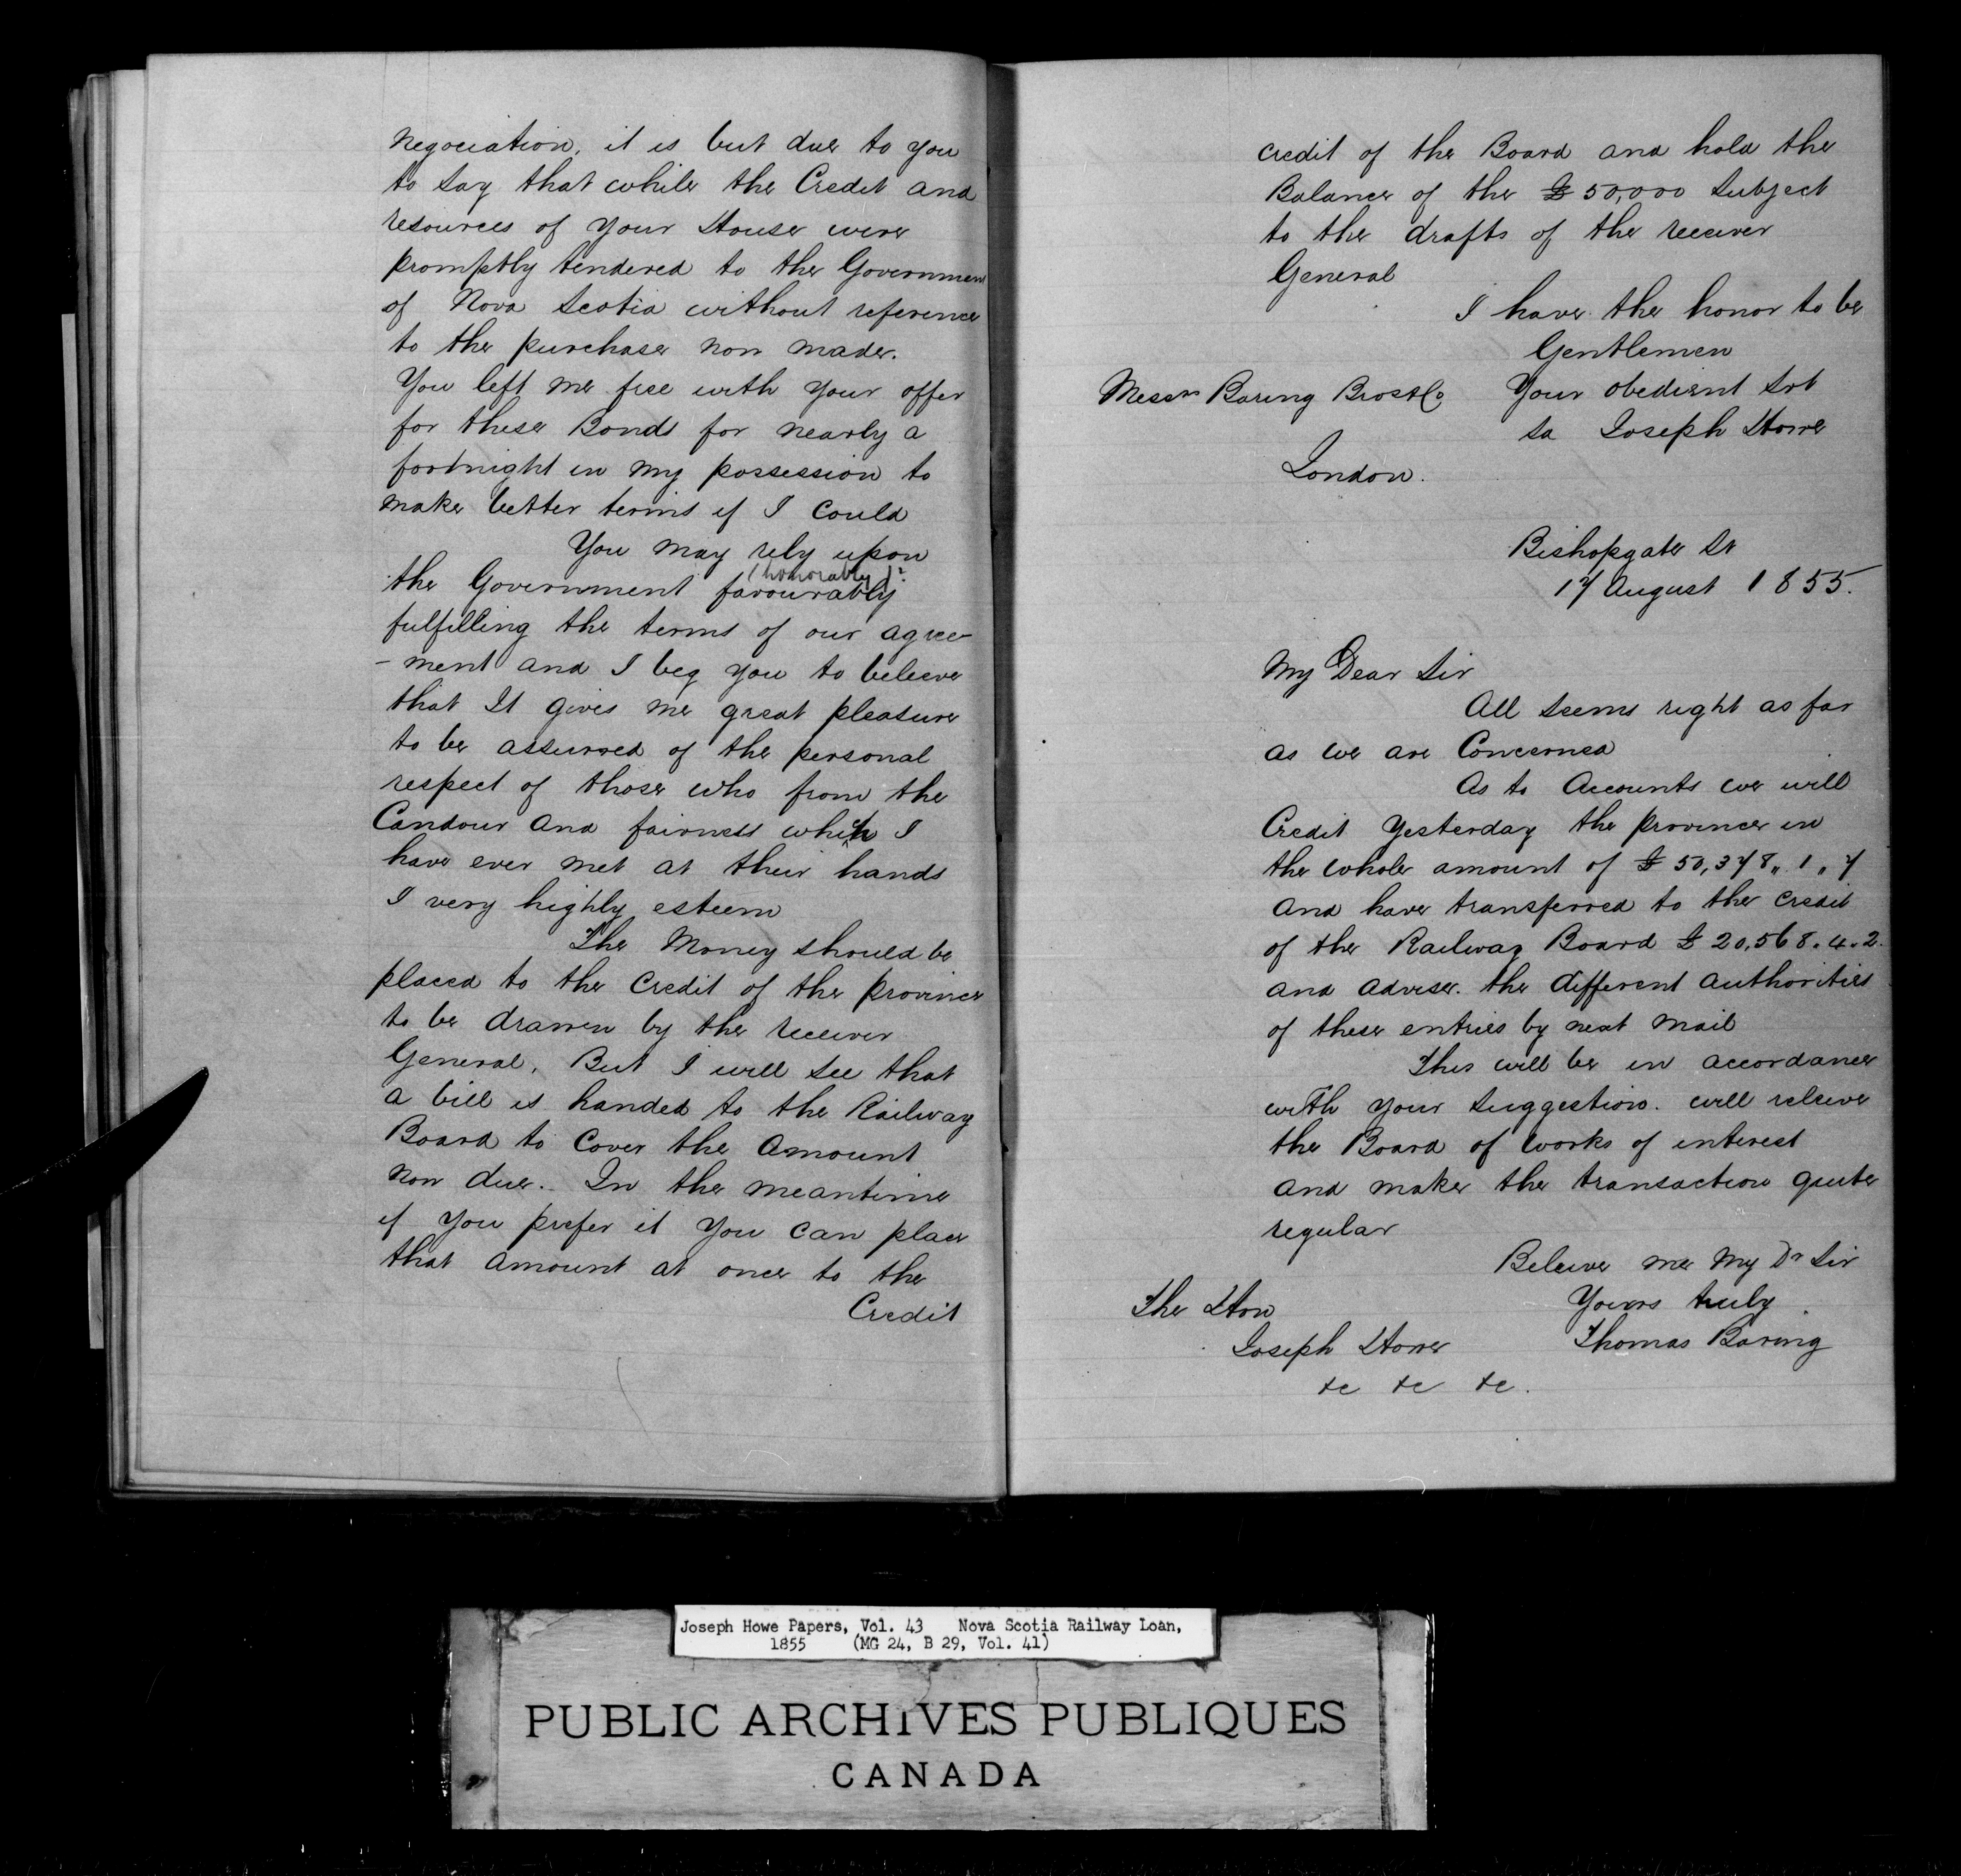 negociation, it is but due to you
to say that while the Credit and
resources of your House were
promptly tendered to the Government
of Nova Scotia without reference
to the purchase now made.
You left me free with your offer
for these Bonds for nearly a
fortnight in my possession to
make better terms if I could
You may rely upon
(honorably)?
the Government favourably
fulfilling the terms of our agree-
-ment and I beg you to beleeve
that It gives me great pleasure
to be assurred of the personal
respect of those who from the
Candour and fairness which I
have ever met at their hands
I very highly esteem
The Money should be
placed to the Credit of the province
to be drawn by the receiver
General, But I will see that
a bill is handed to the Railway
Board to Cover the Amount
now due. In the meantime
if you prefer it you can place
that amount at once to the
Credit
credit of the Board and hold the
Balance of the £50,000 subject
to the drafts of the receiver
General
I have the honor to be
Gentlemen
Messrs Baring Bros & Co Your obedient Svt
sd Joseph Howe
London.
Bishopgate St
17 August 1855.
My Dear Sir
All seems right as far
as we are Concerned
As to Accounts we will
Credit yesterday the province in
the whole amount of £50,378,, 1,, 7
and have transferred to the credit
of the Railway Board £20,568.4.2.
and advise. the different authorities
of these entries by next Mail
This will be in accordance
with your suggestion. will releive
the Board of works of interest
and make the transaction quite
regular
Beleive me My Dr Sir
The Hon Yours truly.
Joseph Howe Thomas Baring
&c &c &c.
Joseph Howe Papers, Vol. 43 Nova Scotia Railway Loan,
1855 (MG 24, B 29, Vol. 41)
PUBLIC ARCHIVES PUBLIQUES
CANADA